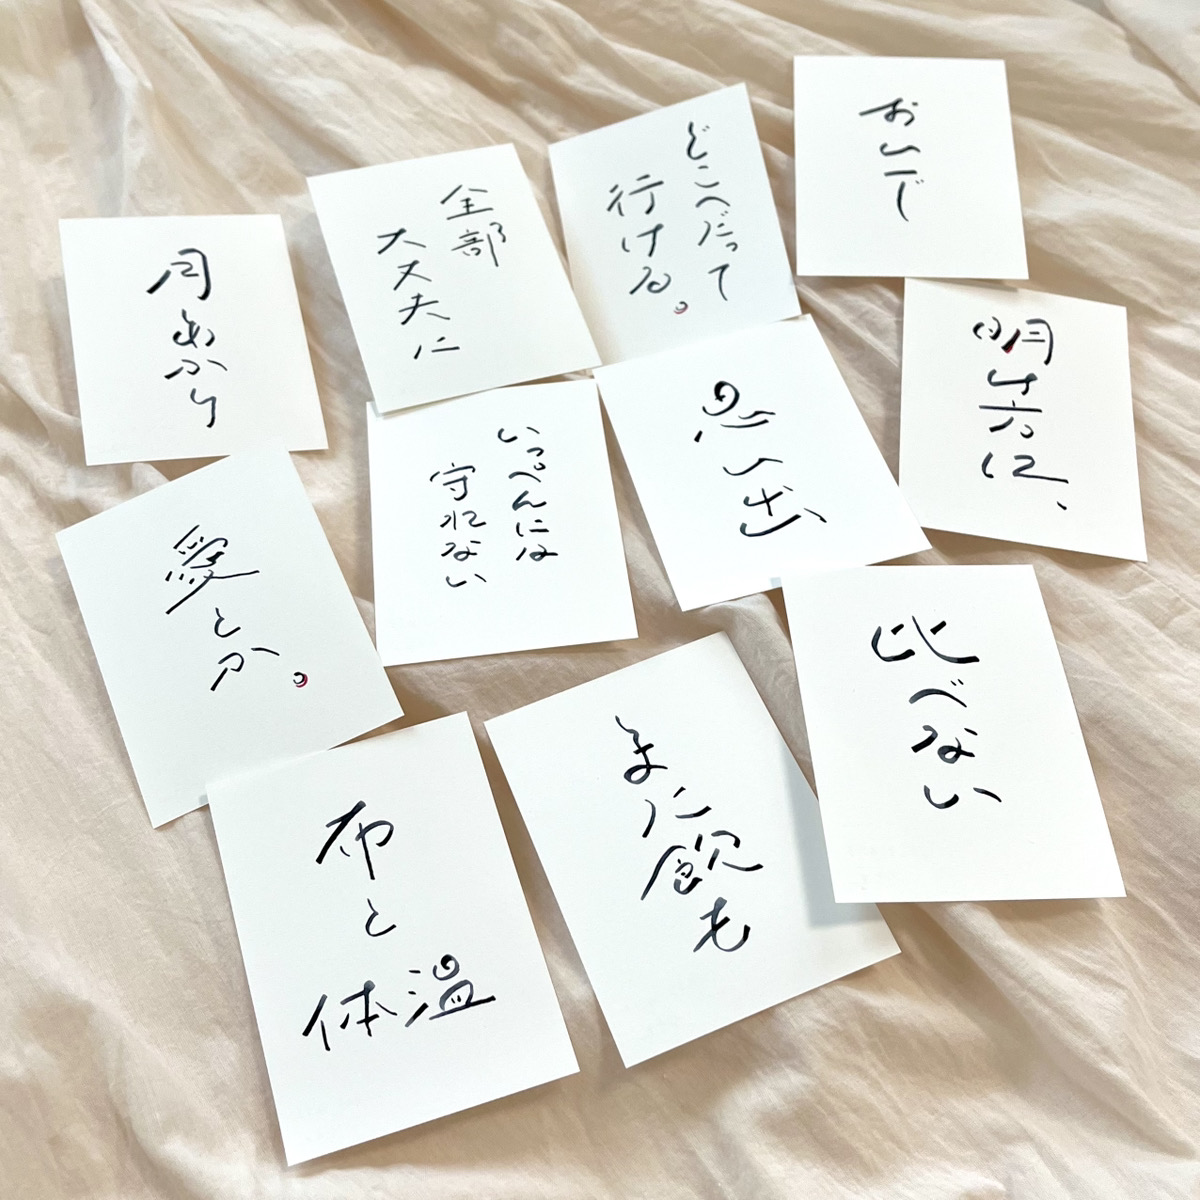 月あかり
全部
大丈夫に
どこへだって
行ける。
おいで
明け方に、
思い出
いっぺんには
守れない
愛とか。
布と
体温
また飲も
比べない